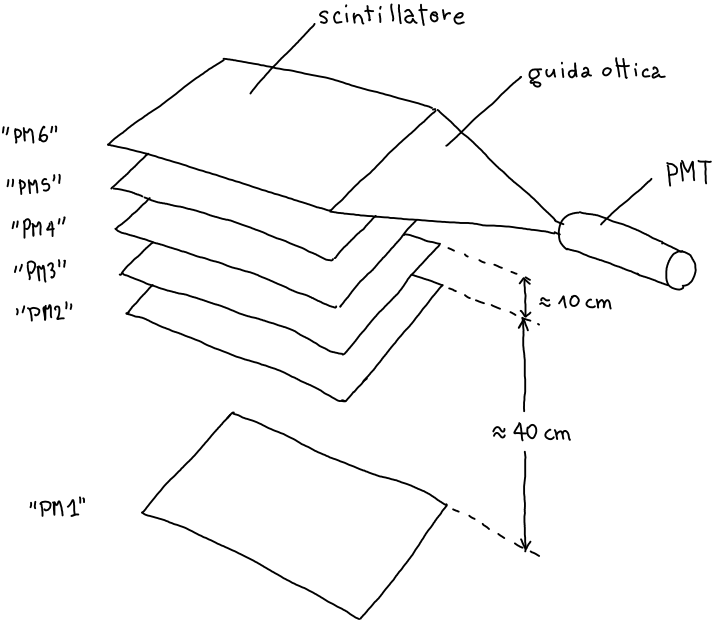 scintillatore
guida ottica
"PM6"
PMT
"PM5"
"PM4"
"PM3"
≈ 10 cm
"PM2"
≈ 40 cm
"PM1"